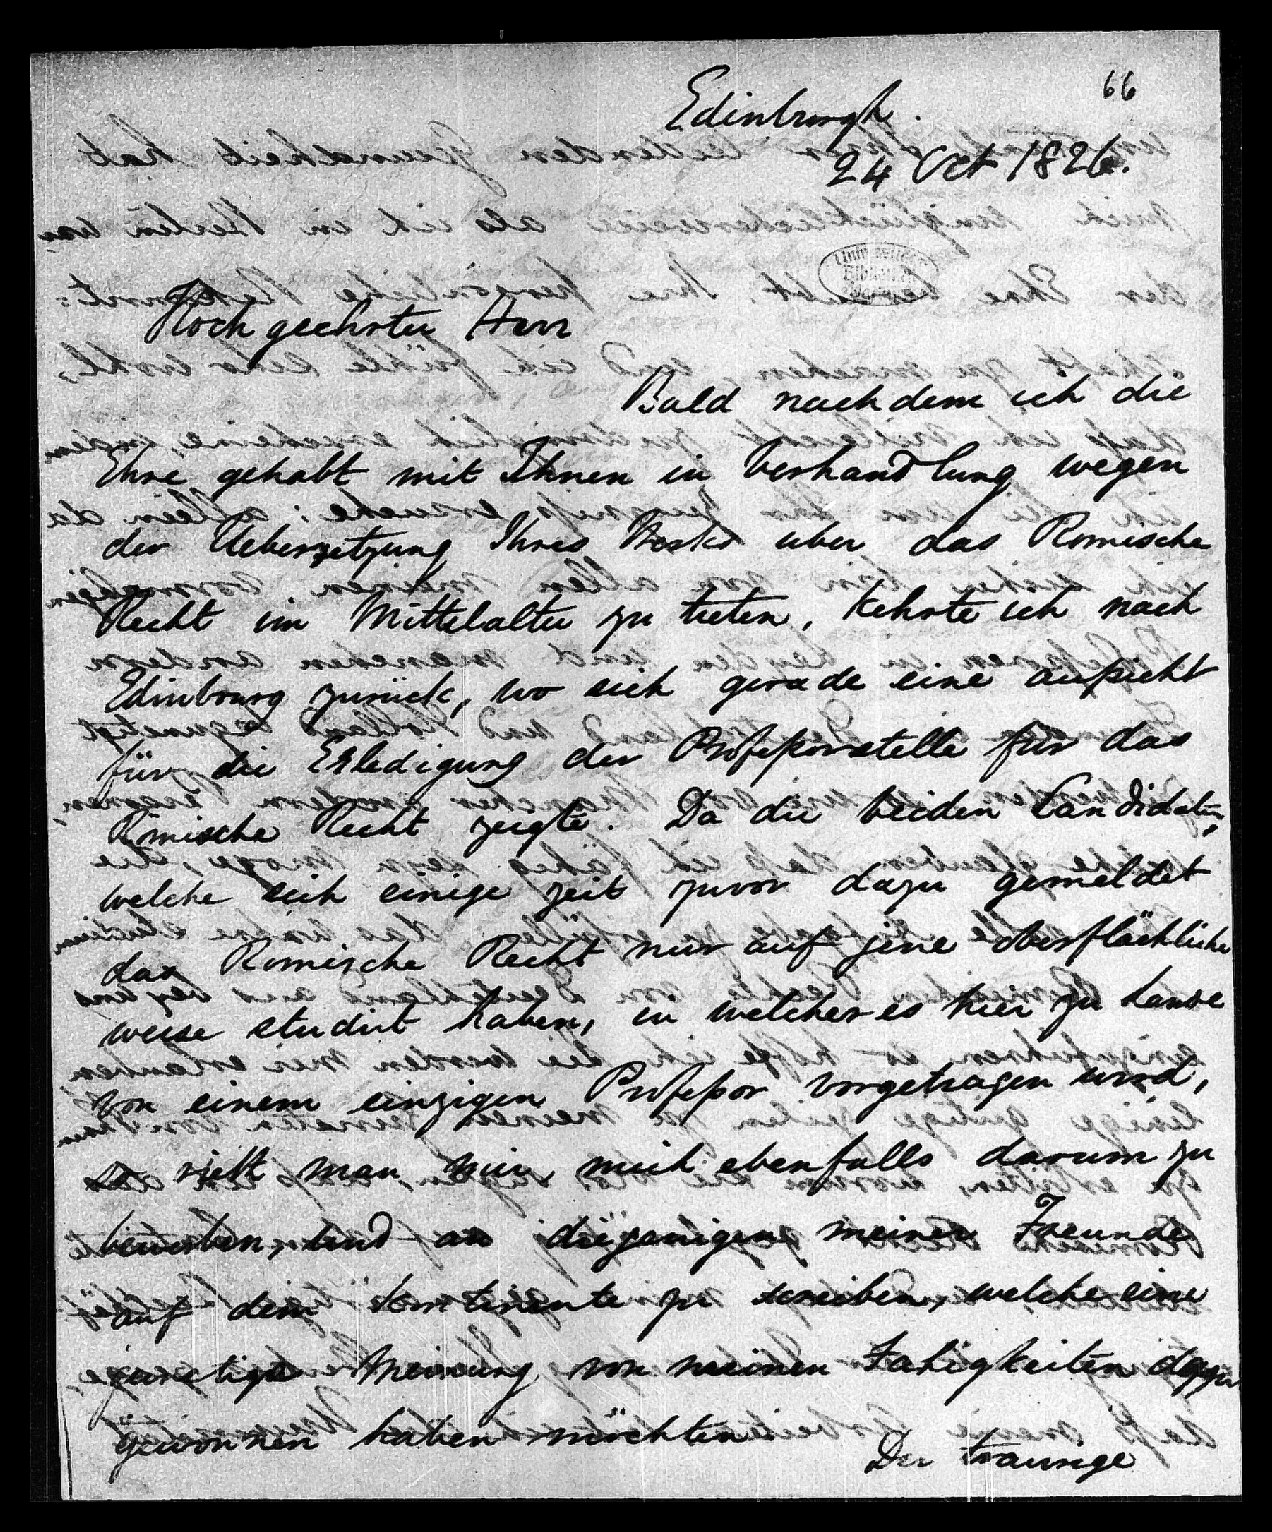 66
Edinburgh.
24 Oct 1826.
Hochgeehrter Herr
Bald nachdem ich die
Ehre gehabt mit Ihnen in Verhandlung wegen
der Uebersetzung Ihres Werks uber das Romische
Recht im Mittelalter zu treten, kehrte ich nach
Edinbourg zurück, wo sich gerade eine aussicht
für die Erledigung der Professorstelle für das
Römische Recht zeigte. Da die beiden Candidaten,
welche sich einige zeit zuvor dazu gemeldet
das Romische Recht nur auf jene oberflächliche
weise studirt haben, in welcher es hier zu Lande
von einem einzigen Professor vorgetragen wird,
so rieth man mir, mich ebenfalls darum zu
bewerben, und an diejenigen meiner Freunde
auf dem Continente zu schreiben, welche eine
günstige Meinung von meinen Fahigkeiten dazu
gewonnen haben möchten.
Der traurige